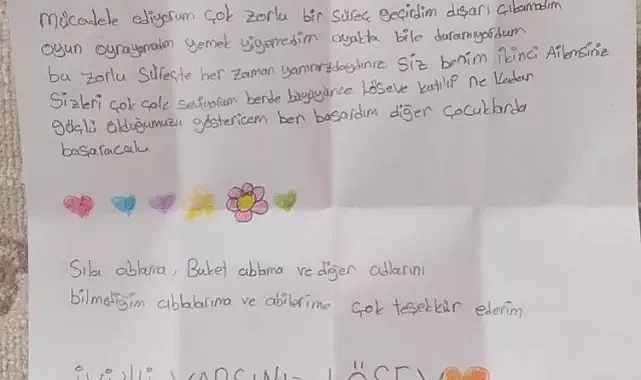 Mücadele ediyorum çok zorlu bir süreç geçirdim dışarı çıkamadım
oyun oynayamadım yemek yiyemedim ayakta bile duramıyordum
bu zorlu süreçte her zaman yanımızdaydınız Siz benim ikinci Ailemsiniz
Sizleri çok çok seviyorum bende büyüyünce Lösev'e katılıp ne kadar
güçlü olduğumuzu göstericem ben başardım diğer çocuklarda
başaracak
Sıla ablama, Buket ablama ve diğer adlarını
bilmediğim ablalarıma ve abilerime çok teşekkür ederim
İyiki VARSINIZ LÖSEV